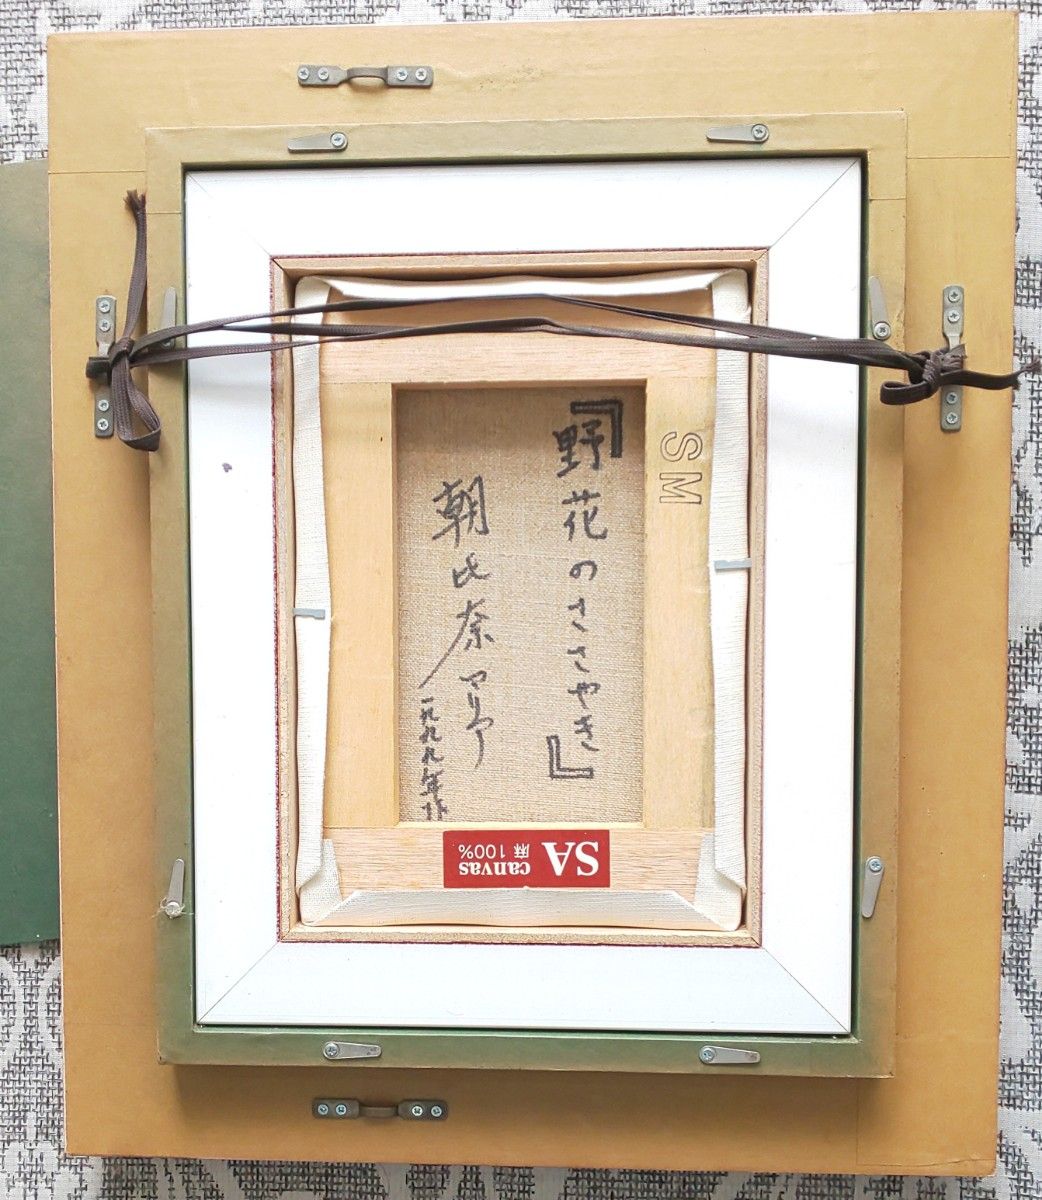 『野花のささやき』
朝比奈マリア
一九九九年作
SM
SA
canvas
麻 100%